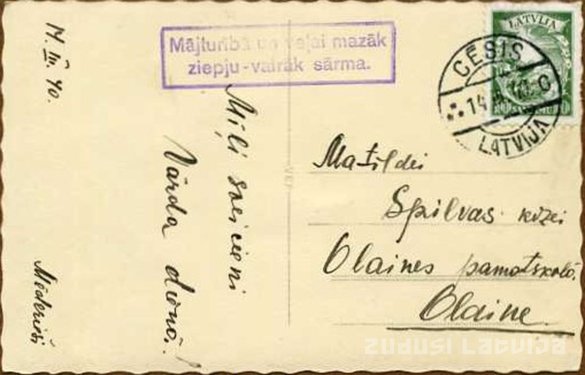 Mājturībā un veļai mazāk
ziepju-vairāk sārma.
LATVIJA
CĒSIS
14
LATVIJA
14. III. 40.
Miļi sveicieni
Vārda dienā.
Matildei
Spilvas kdzei
Olaines pamatskolā.
Olaine.
ZUDUSI LATVIJA